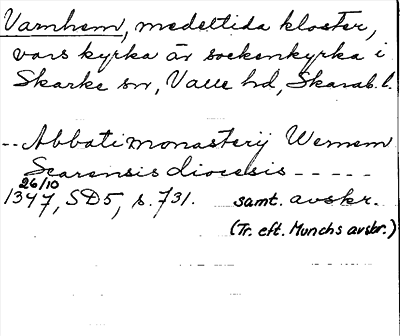 Varnhem, medeltida kloster,
vars kyrka är sockenkyrka i
Skarke sn, Valle hd, Skarab. l.
-- Abbati monasterij Wernem
Scarensis diocesis -----
26/10
1347, SD5, s. 731. samt. avskr.
(Tr. eft. Munchs avskr.)